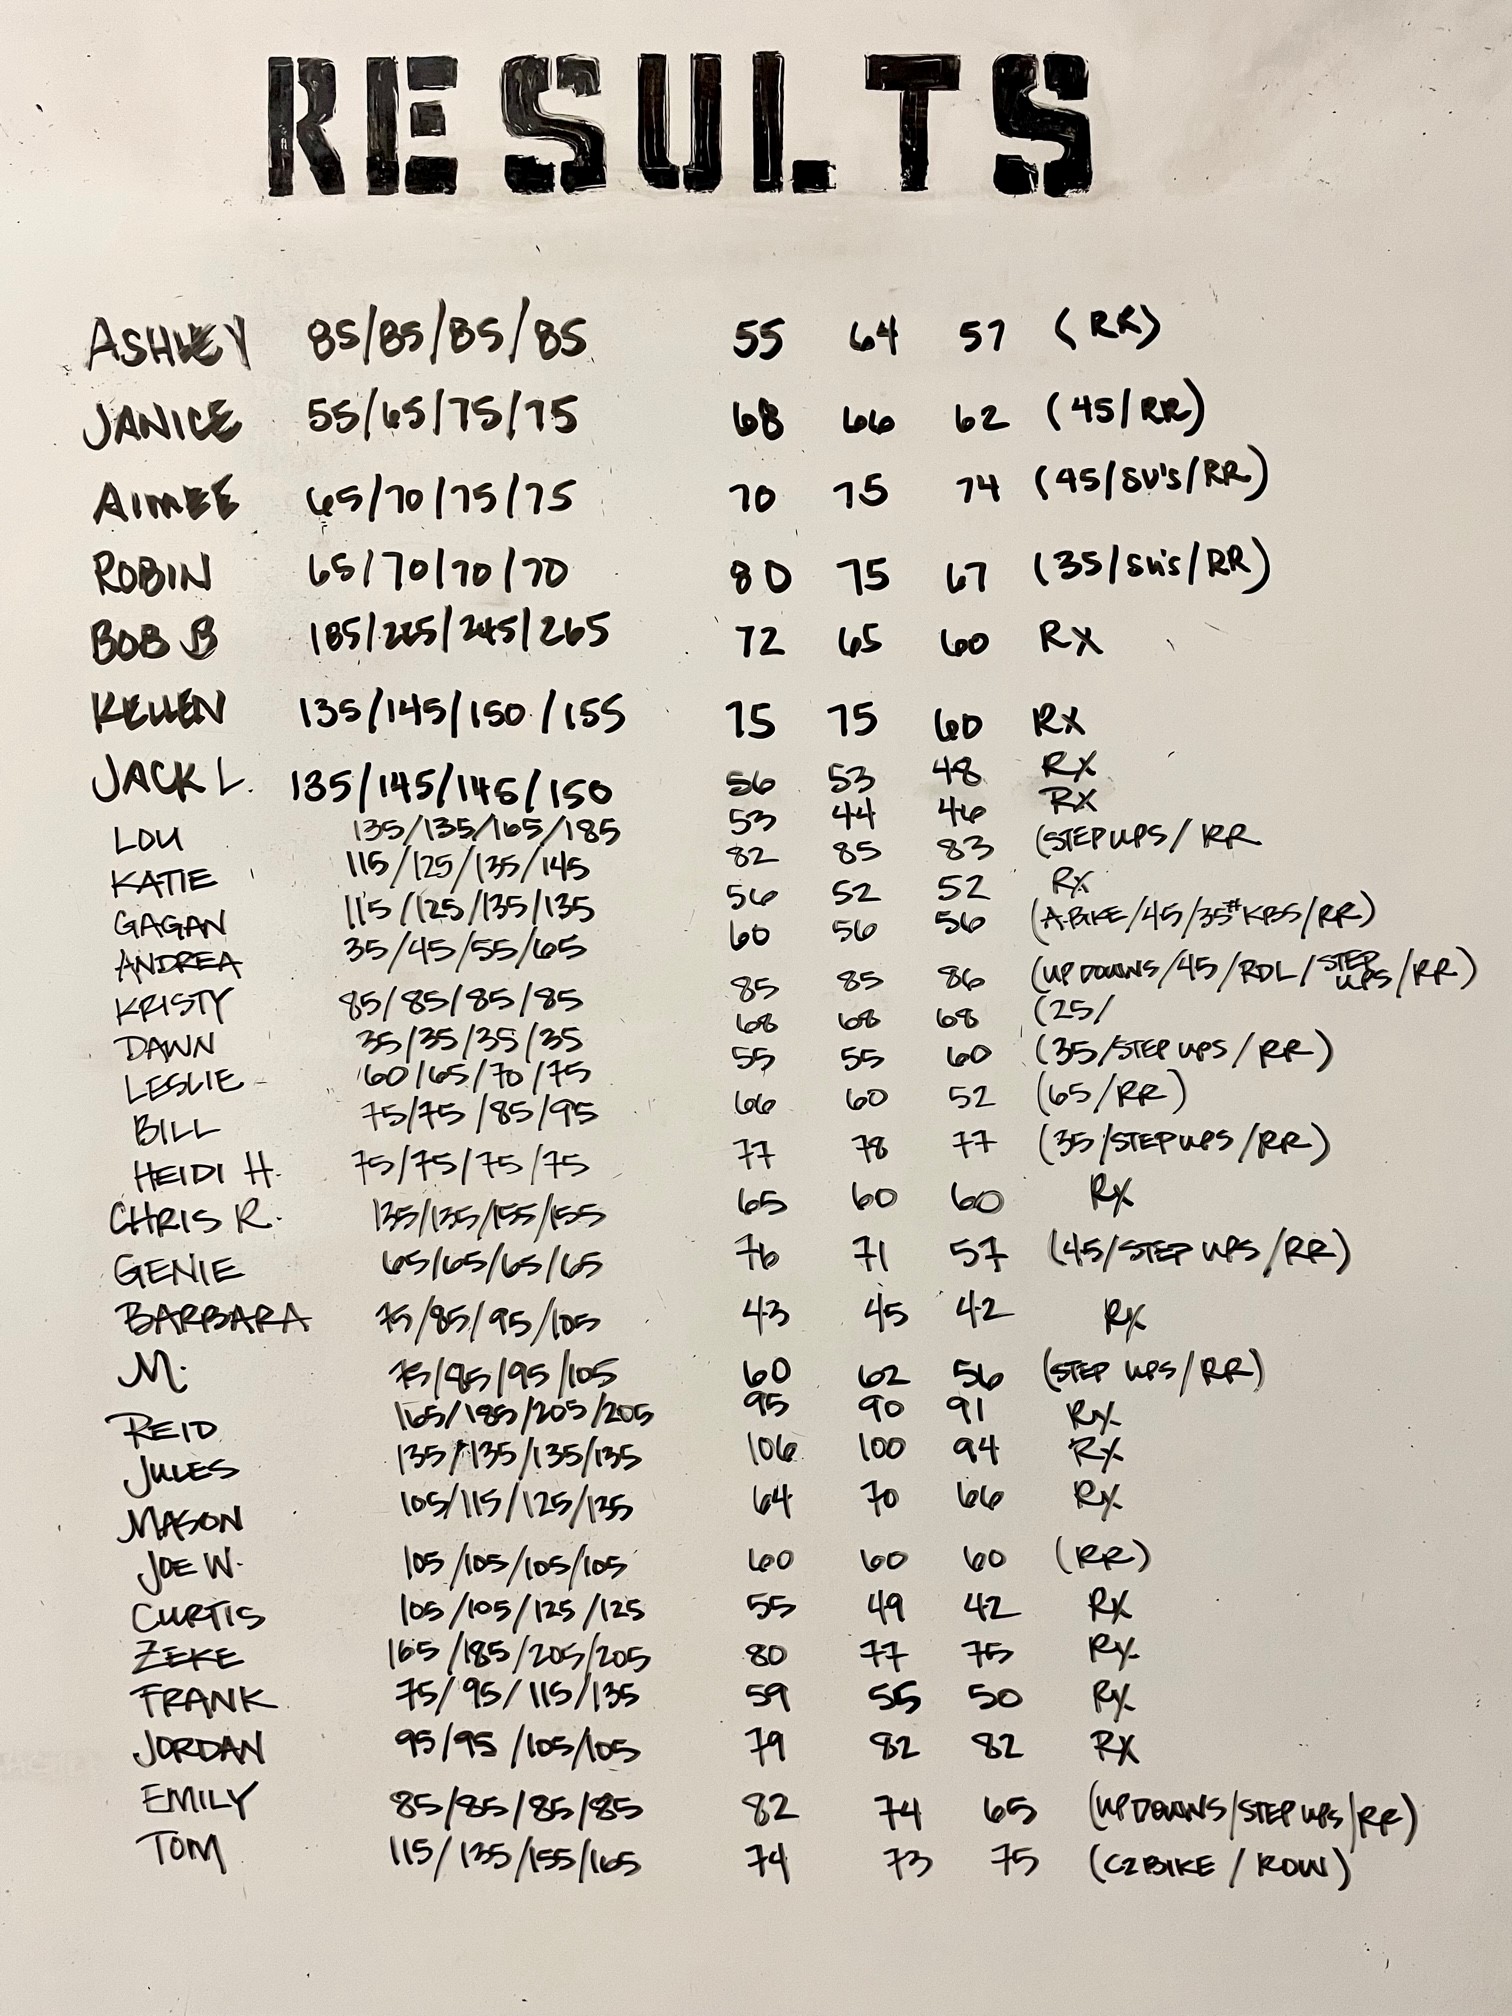 RESULTS
ASHLEY 85/85/85/85 55 64 57 (RR)
JANICE 55/65/75/75 68 66 62 (45/RR)
AIMEE 65/70/75/75 70 75 74 (45/SU's/RR)
ROBIN 65/70/70/70 80 75 67 (35/SU's/RR)
BOB B 185/225/245/265 72 65 60 RX
KELLEN 135/145/150/155 75 75 60 RX
JACK L. 135/145/145/150 56 53 48 RX
LOU 135/135/165/185 53 44 46 RX
KATIE 115/125/135/145 82 85 83 (STEP UPS/ RR
GAGAN 115/125/135/135 56 52 52 RX
ANDREA 35/45/55/65 60 56 56 (A.BIKE/45/35# KBS/RR)
KRISTY 85/85/85/85 85 85 86 (UP DOWNS/45/RDL/STEP UPS/RR)
DAWN 35/35/35/35 68 68 68 (25/
LESLIE 60/65/70/75 55 55 60 (35/STEP UPS/RR)
BILL 75/75/85/95 66 60 52 (65/RR)
HEIDI H. 75/75/75/75 77 78 77 (35/STEP UPS/RR)
CHRIS R. 135/135/155/155 65 60 60 RX
GENIE 65/65/65/65 76 71 57 (45/STEP UPS/RR)
BARBARA 75/85/95/105 43 45 42 RX
M. 75/85/95/105 60 62 56 (STEP UPS/RR)
REID 165/185/205/205 95 90 91 RX
JULES 135/135/135/135 106 100 94 RX
MASON 105/115/125/135 64 70 66 RX
JOE W. 105/105/105/105 60 60 60 (RR)
CURTIS 105/105/125/125 55 49 42 RX
ZEKE 165/185/205/205 80 77 75 RX
FRANK 75/95/115/135 59 55 50 RX
JORDAN 95/95/105/105 79 82 82 RX
EMILY 85/85/85/85 82 74 65 (UP DOWNS/STEP UPS/RR)
TOM 115/135/155/165 74 73 75 (C2 BIKE / ROW)